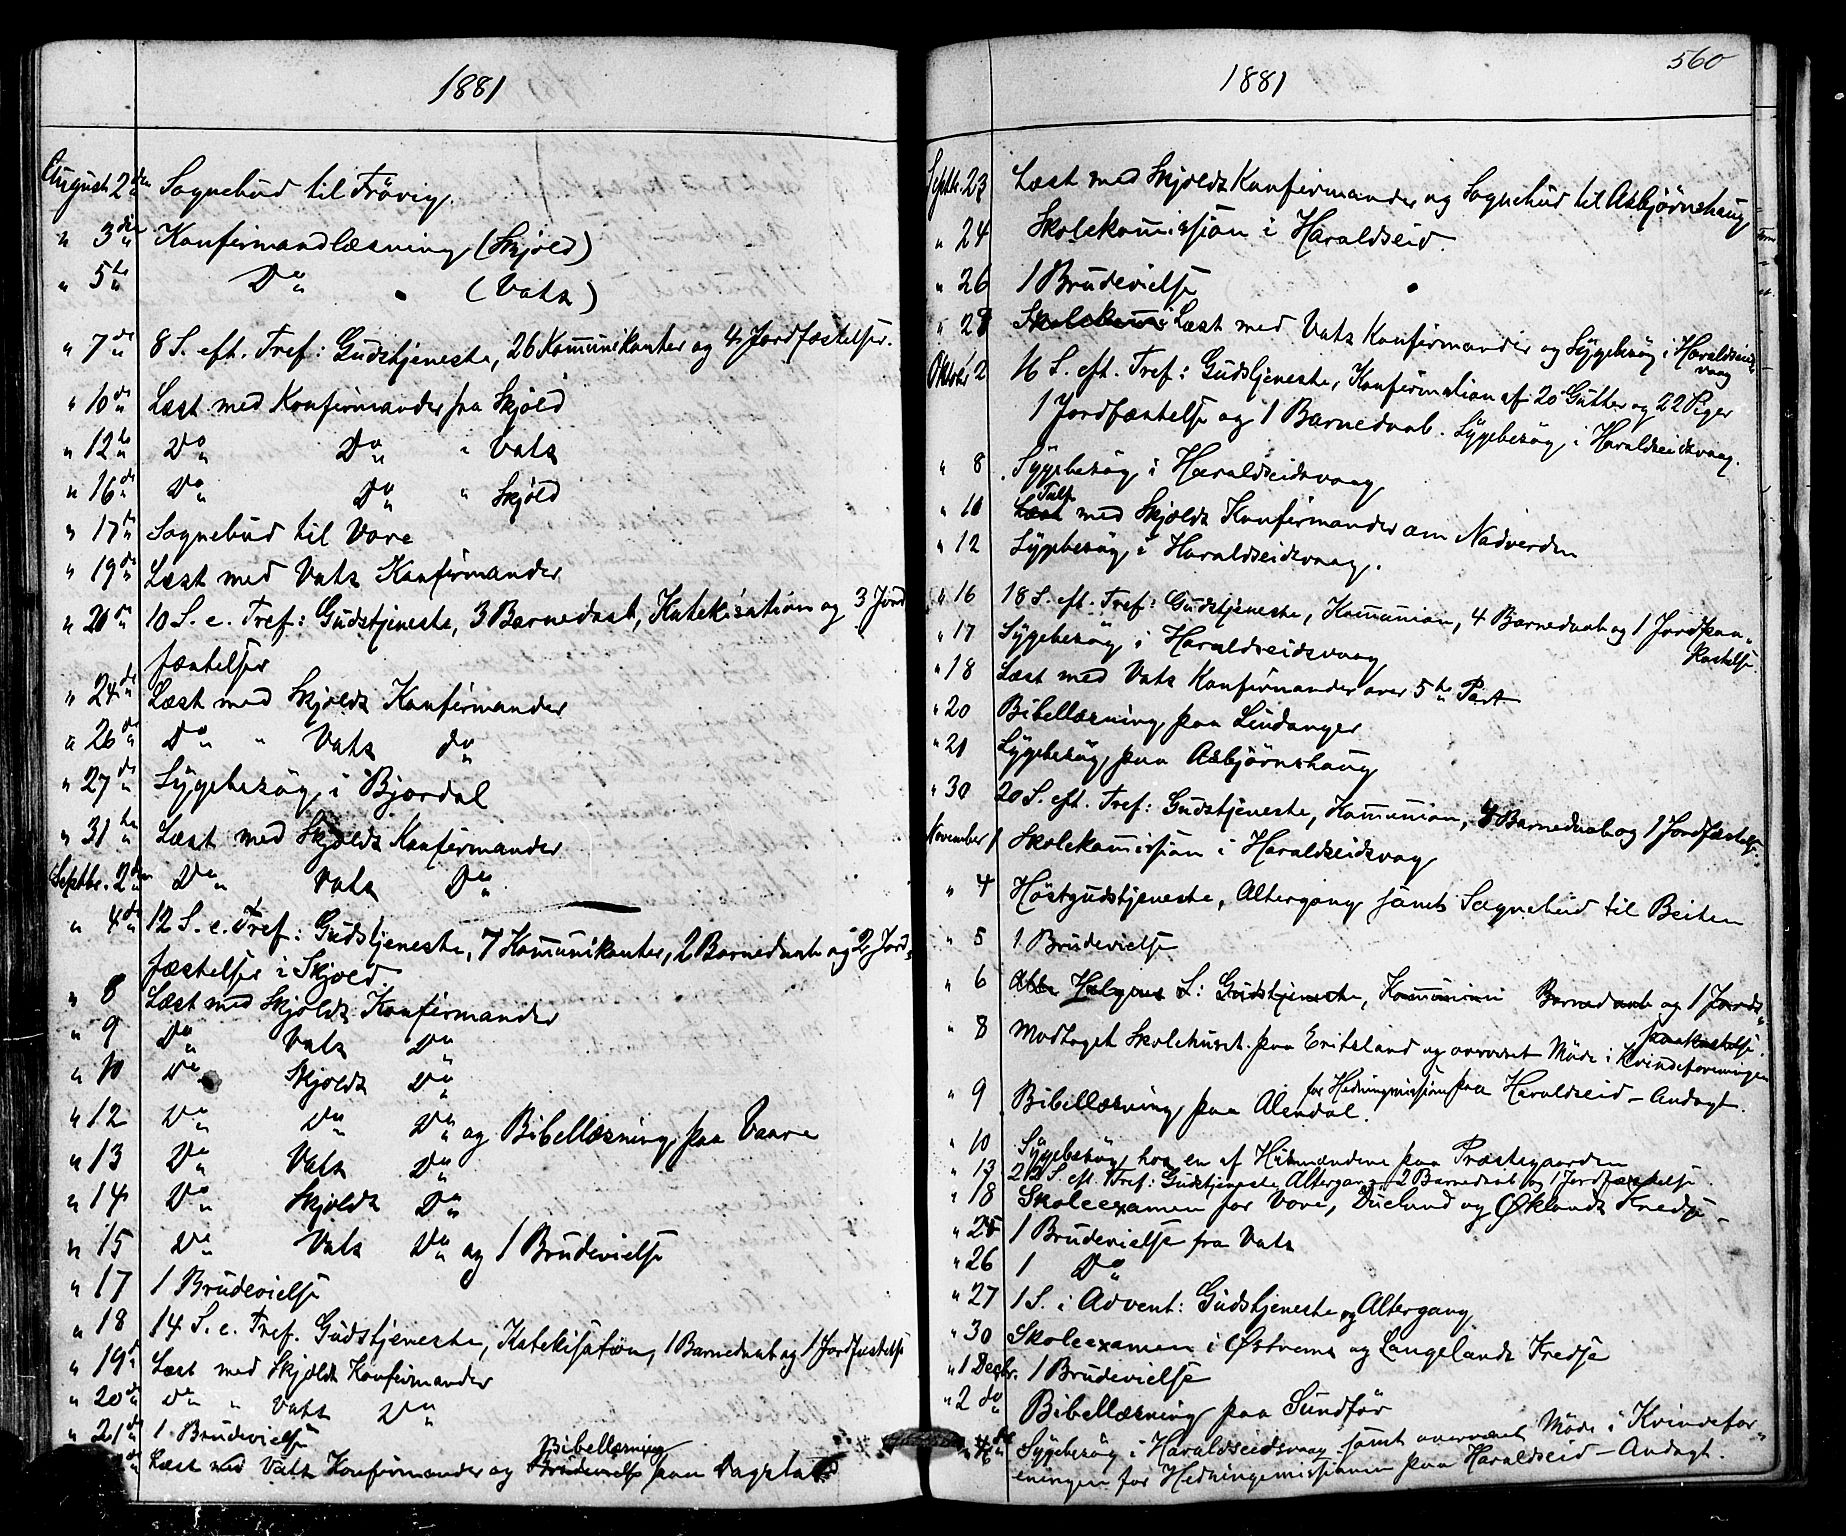 1881
August 2den Sognebud til Frövig.
" 3die Konfirmandlæsning (Skjold)
" 5te Do (Vats)
" 7de 8 S. eft. Tref: Gudstjeneste, 26 Kommunikanter og 4 Jordfæstelser.
" 10de Læst med Konfirmander fra Skjold
" 12te Do Do " Vats
" 16de Do Do " Skjold
" 17de Sognebud til Vore
" 19de Læst med Vats Konfirmander
" 20de 10 S. e. Tref: Gudstjeneste, 3 Barnedaab, Katekisation og 3 Jord
fæstelser
" 24de Læst med Skjolds Konfirmander
" 26de Do " Vats do
" 27de Sygebesøg i Bjordal
" 31te Læst med Skjolds Konfirmander
Septbr. 2den Do Vats Do
" 4de 12 S. e. Tref: Gudstjeneste, 7 Kommunikanter, 2 Barnedaab og 2 Jord-
fæstelser i Skjold
" 8 Læst med Skjolds Konfirmander
" 9 Do Vats Do
" 10 Do Skjolds Do
" 12 Do Do Do og Bibellæsning paa Vaare
" 13 Do Vats Do
" 14 Do Skjolds Do
" 15 Do Vats Do og 1 Brudevielse
" 17 1 Brudevielse
" 18 14 S. e. Tref. Gudstjeneste, Katekisation, 1 Barnedaab og 1 Jordfæstelse
" 19de Læst med Skjolds Konfirmander
" 20de Do " Vats Do
" 21de 1 Brudevielse
Læst med Vats Konfirmander og Brudevielse Bibellæsning paa Dagsland
560
1881
Septbr. 23 Læst med Skjolds Konfirmander og Sognebud til Asbjørnshaug
" 24 Skolekommission i Haraldseid.
" 26 1 Brudevielse
" 28 Skolekommi Læst med Vats Konfirmander og Sygebesøg i Haraldseids-
vaag
Oktober 2 16 S. eft. Tref: Gudstjeneste, Konfirmation af 20 Gutter og 22 Piger
1 Jordfæstelse og 1 Barnedaab. Sygebesøg i Haraldseidsvaag.
" 8 Sygebesøg i Haraldseidsvaag
" 10 Læst Talt med Skjolds Konfirmander om Nadverden
" 12 Sygebesøg i Haraldseidsvaag.
" 16 18 S. eft. Tref: Gudstjeneste, Kommunion, 4 Barnedaab og 1 Jordpaa-
kastelse
" 17 Sygebesøg i Haraldseidsvaag
" 18 Læst med Vats Konfirmander over 5te Part
" 20 Bibellæsning paa Lindanger
" 21 Sygebesøg paa Asbjørnshaug
" 30 20 S. eft. Tref: Gudstjeneste, Kommunion, 4 Barnedaab og 1 Jordfæstelse.
November 1 Skolekommission i Haraldseidsvag
" 4 Høstgudstjeneste, Altergang samt Sognebud til Beiten
" 5 1 Brudevielse
" 6 Alle Helgens S: Gudstjeneste, Kommunion Barnedaab og 1 Jords-
paakastelse.
" 8 Modtaget Skolehuset paa Eritsland og overværet Möde i Kvindeforeningen
for Hedningmissionen paa Haraldseid – Andagt.
" 9 Bibellæsning paa Alendal.
" 10 Sygebesøg hos en af Husmændene paa Præstegaarden
" 13 22 S. eft. Tref: Gudstjeneste Altergang 2 Barnedaab og 1 Jordfæstelse.
" 18 Skoleexamen for Vore, Dueland og Øklands Kredse
" 25 1 Brudevielse fra Vats
" 26 1 Do
" 27 1 S. i Advent: Gudstjeneste og Altergang
" 30 Skoleexamen i Østrems og Langelands Kredse
" 1 Decbr. 1 Brudevielse
" 2 do Bibellæsning paa Sundför
Sygebesøg i Haraldseidsvaag samt overværet Möde i Kvindefor-
eningen for Hedningemissionen paa Haraldseid – Andagt.